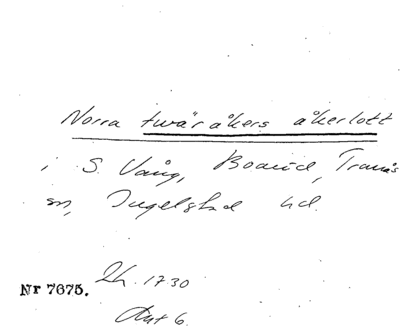 Norra tvär åkers åkerlott
i S. Vång, Boarid, Tranås
sn, Ingelstad hd.
Lh. 1730
Nr 7675.
Akt 6.